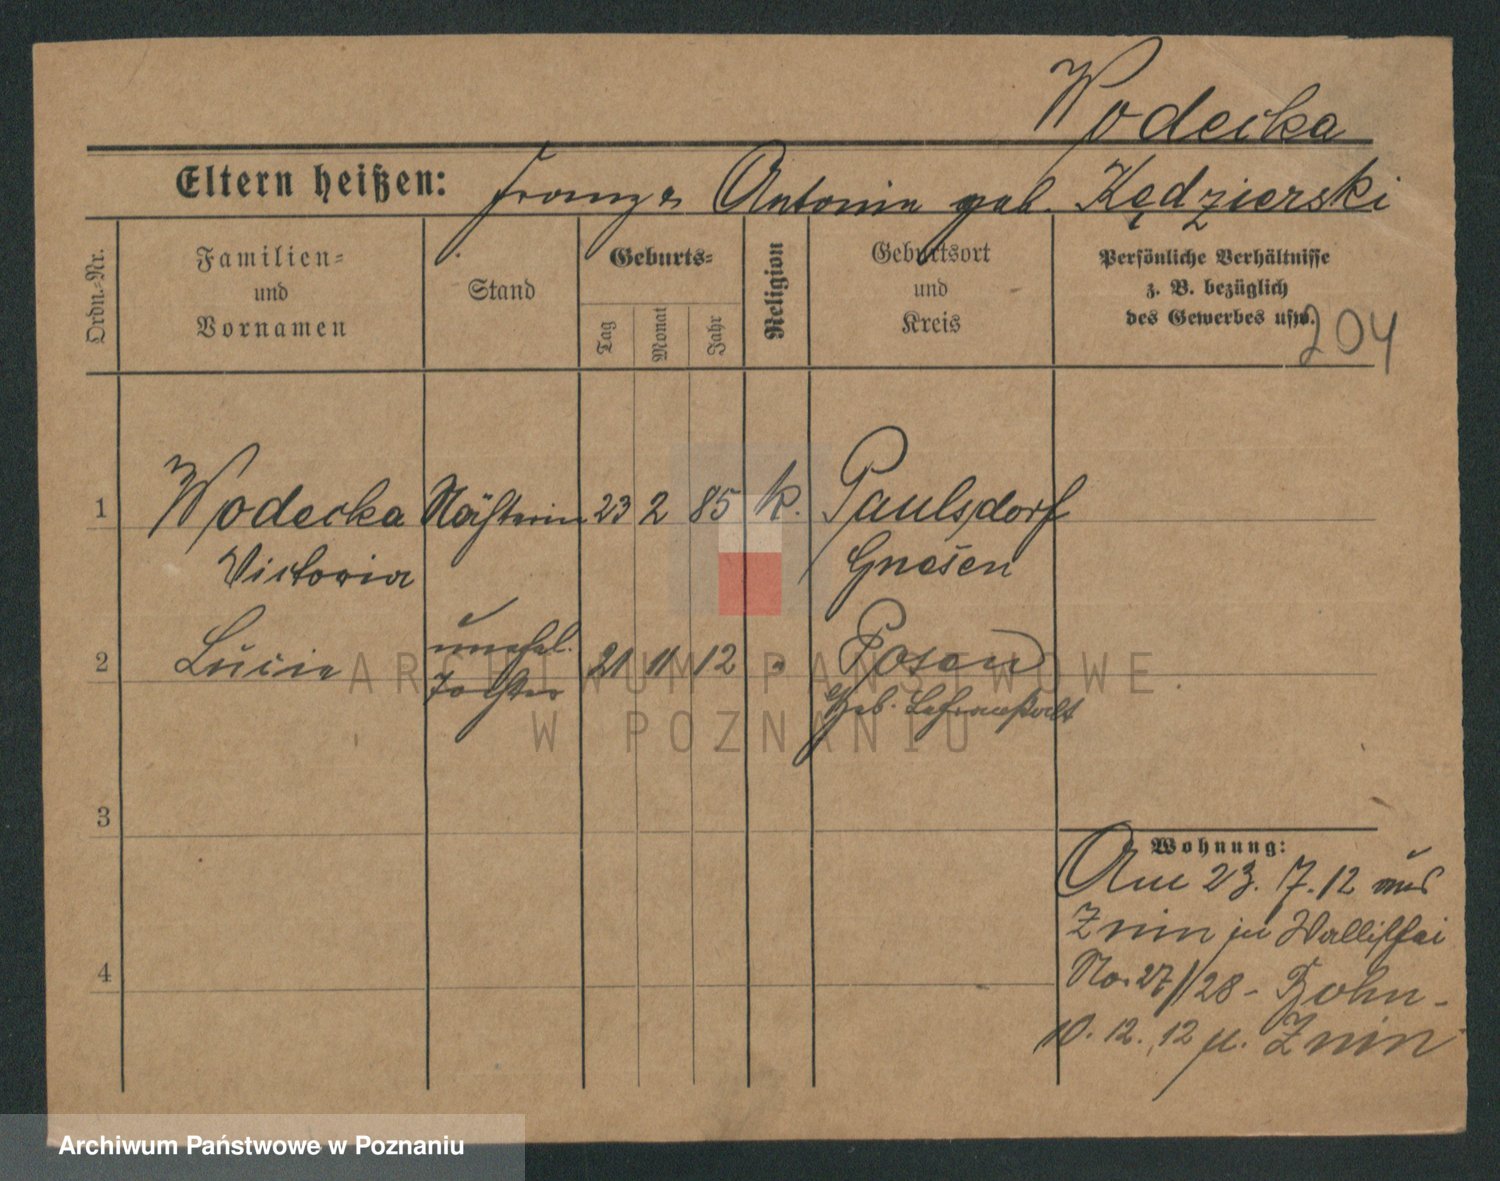 Wodecka
Eltern heißen: Franz u. Antonia geb. Kędzierski
Ordn.-Nr.
Familien-
und
Vornamen
Stand
Geburts-
Tag
Monat
Jahr
Religion
Geburtsort
und
Kreis
Persönliche Verhältnisse
z. B. bezüglich
des Gewerbes usw.
204
1 Wodecka Nähterin 23 2 85 k. Paulsdorf
Victoria Gnesen
2 Lucie unehel. 21 11 12 " Posen
Tochter Heb. Lehranstalt
3
Wohnung:
Am 23. 7. 12 aus
Znin in Wallischei
No. 27/28 - Bohn -
4
10. 12. 12 n. Znin
ARCHIWUM PAŃSTWOWE
W POZNANIU
Archiwum Państwowe w Poznaniu